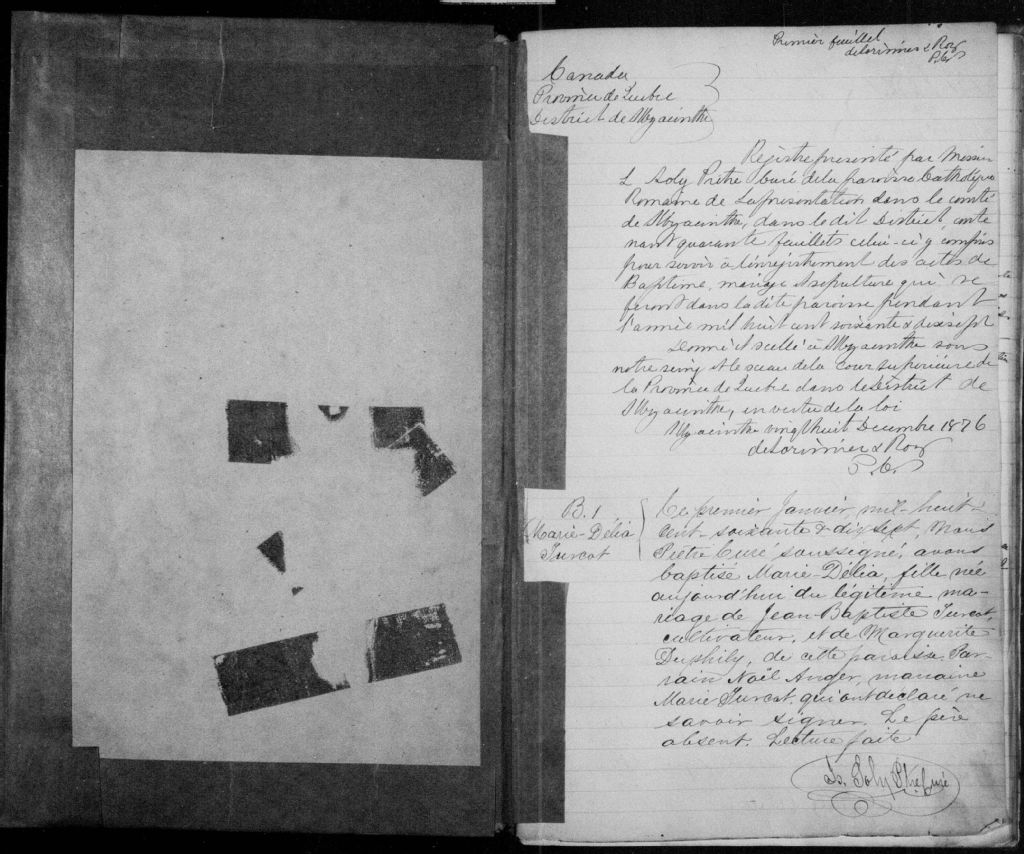 Premier feuillet
deLorimier & Roy
P.C.S.
Canada
Province de Québec
District de St Hyacinthe
Registre presenté par Messire
L Soly Prêtre Curé de la paroisse Catholique
Romaine de Laprésentation dans le comté
de St Hyacinthe, dans le dit District, conte
nant quarante feuillets celui-ci y compris
pour servir à l'enregistrement des actes de
Baptême, mariage et sepulture qui se
feront dans la dite paroisse pendant
l'année mil huit cent soixante & dixsept
Donné et scellé à St Hyacinthe sous
notre seing et le sceau de la Cour supérieure de
la Province de Québec dans le District de
St Hyacinthe, en vertu de la loi
St Hyacinthe vingt huit Decembre 1876
deLorimier & Roy
P.C.S.
B. 1
Marie-Délia
Turcot
Ce premier Janvier mil-huit-
cent-soixante & dix sept, Nous
Prêtre Curé soussigné, avons
baptisé Marie-Délia, fille née
aujourd'hui du légitime ma-
riage de Jean-Baptiste Turcot,
cultivateur, et de Marguerite
Duphily, de cette paroisse. Par-
rain Noël Anger, marraine
Marie Turcot, qui ont declaré ne
savoir signer. Le père
absent. Lecture faite
Ls. Soly Ptre Curé